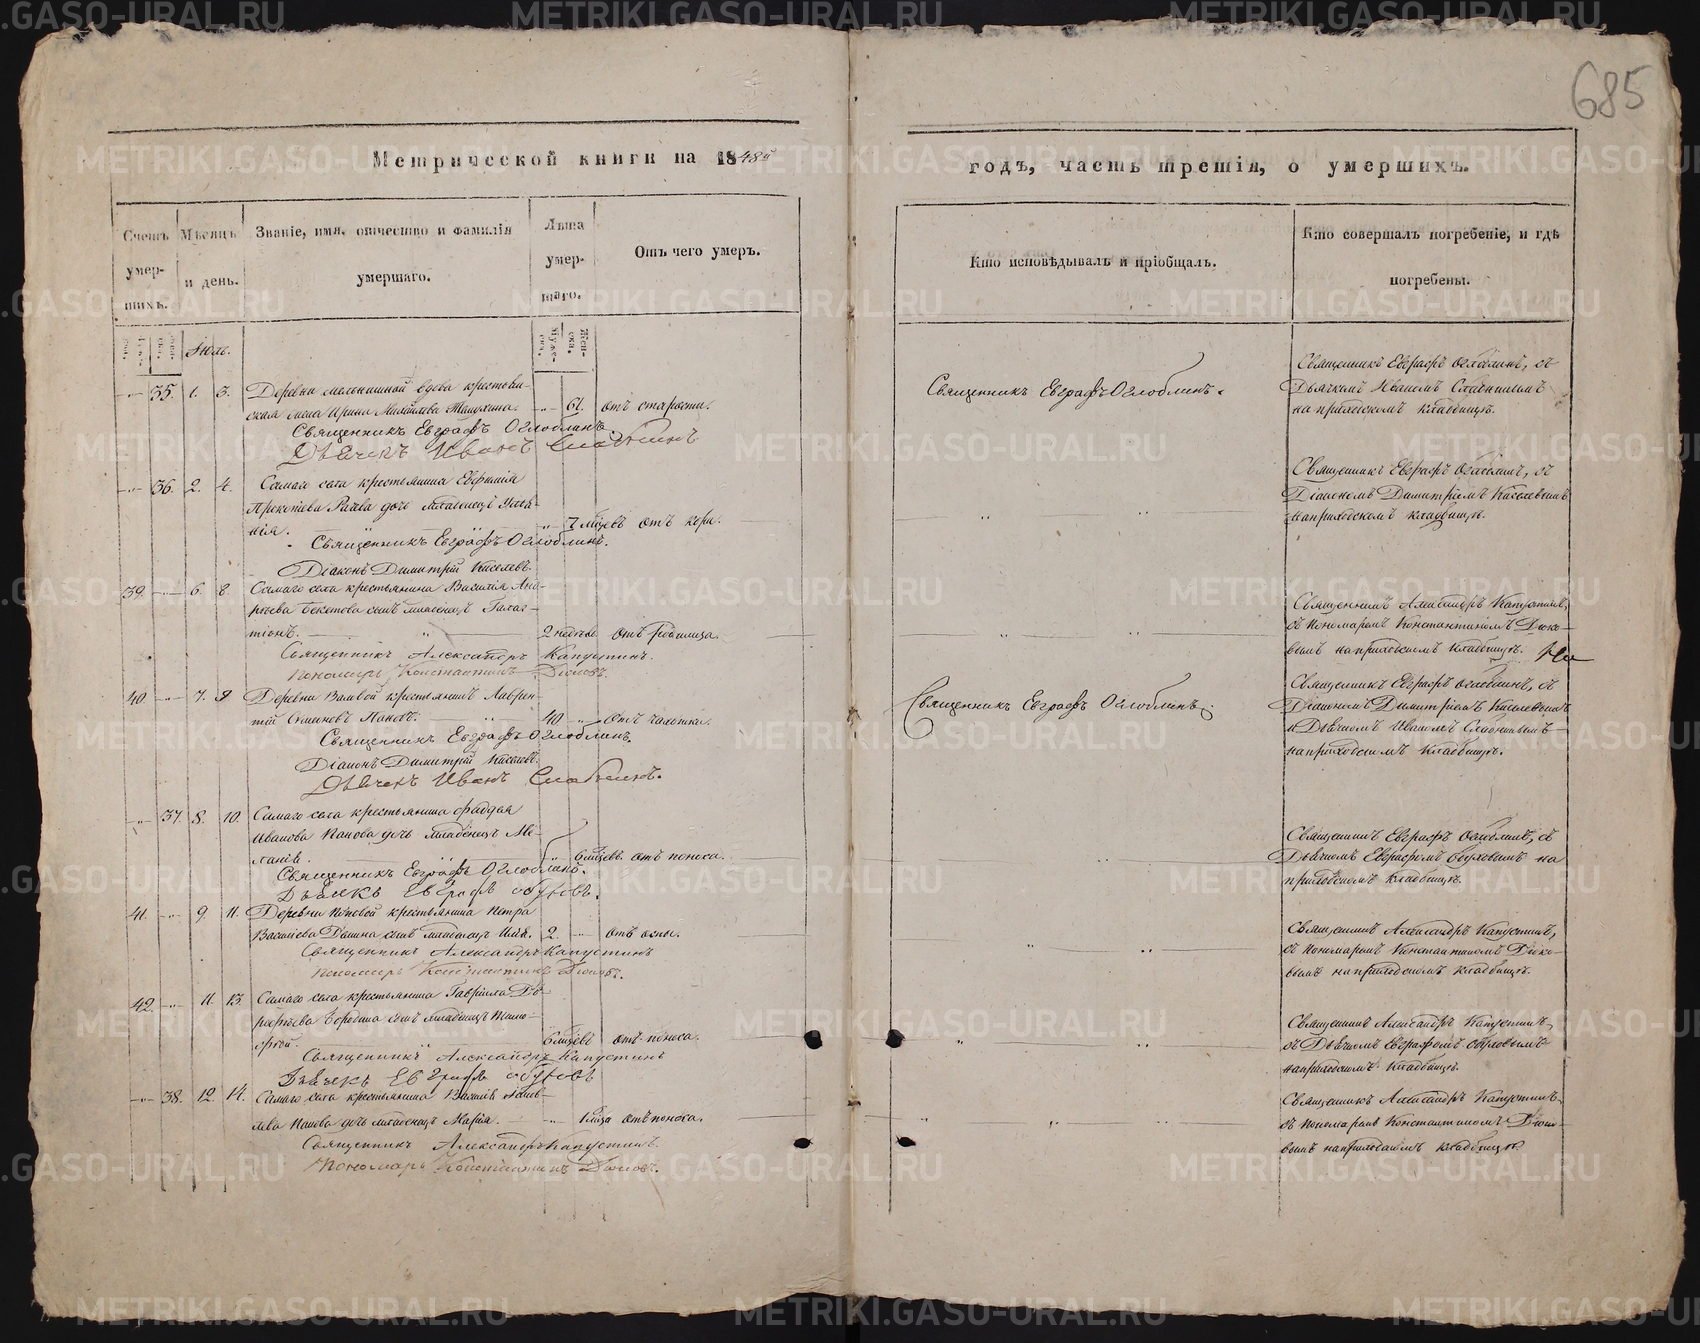 685
Метрической книги на 1848й
годъ, часть третія, о умершихъ.
Счетъ умер-
шихъ.
Мѣсяцъ
и день.
Званіе, имя, отчество и фамилія
умершаго.
Лѣта
умер-
шаго.
Отъ чего умеръ.
Кто исповѣдывалъ и пріобщалъ.
Кто совершалъ погребеніе, и гдѣ
погребены.
Іюль.
35. 1. 3. Деревни вдова крестьян-
ская жена Ирина 61. отъ старости.
Священникъ Евграфъ Оглоблинъ.
Дьячекъ Иванъ
Священникъ Евграфъ Оглоблинъ.
Священникъ Евграфъ Оглоблинъ, съ
Дьячкомъ Иваномъ
на приходскомъ кладбищѣ.
36. 2. 4. Самаго села крестьянина Евфимія
Прокопьева дочь младенецъ Улья-
нія. 7 мѣсцевъ отъ кори.
Священникъ Евграфъ Оглоблинъ.
Діаконъ Димитрій Киселевъ.
Священникъ Евграфъ Оглоблинъ, съ
Діакономъ Димитріемъ Киселевымъ
на приходскомъ кладбищѣ.
39. 6. 8. Самаго села крестьянина Василія Анд-
реева Бекетова сынъ младенецъ Галак-
тіонъ. 2 недѣль отъ родимца.
Священникъ Александръ Капустинъ.
Пономарь Константинъ
Священникъ Александръ Капустинъ,
съ Пономаремъ Константиномъ
вымъ на приходскомъ кладбищѣ.
40. 7. 9. Деревни крестьянинъ Лаврен-
тій Семеновъ Пановъ. 40 отъ чахотки.
Священникъ Евграфъ Оглоблинъ
Діаконъ Димитрій Киселевъ.
Дьячекъ Иванъ
Священникъ Евграфъ Оглоблинъ.
Священникъ Евграфъ Оглоблинъ, съ
Діакономъ Димитріемъ Киселевымъ
и Дьячкомъ Иваномъ
на приходскомъ кладбищѣ.
37. 8. 10. Самаго села крестьянина Фаддея
Иванова Панова дочь младенецъ Ме-
ланія. 6 мѣсцевъ. отъ поноса.
Священникъ Евграфъ Оглоблинъ.
Дьячекъ Евграфъ
Священникъ Евграфъ Оглоблинъ, съ
Дьячкомъ Евграфомъ на
приходскомъ кладбищѣ.
41. 9. 11. Деревни крестьянина Петра
Васильева сынъ младенецъ Илія. 2. отъ оспы.
Священникъ Александръ Капустинъ
Пономарь Константинъ
Священникъ Александръ Капустинъ,
съ Пономаремъ Константиномъ
вымъ на приходскомъ кладбищѣ.
42. 11. 13. Самаго села крестьянина Гавріила До-
рофеева Бородина сынъ младенецъ Тимо-
фей. 6 мѣсцевъ отъ поноса.
Священникъ Александръ Капустинъ
Дьячекъ Евграфъ
Священникъ Александръ Капустинъ,
съ Дьячкомъ Евграфомъ
на приходскомъ кладбищѣ.
38. 12. 14. Самаго села крестьянина Василія
Панова дочь младенецъ Марія. 1 мѣсца отъ поноса.
Священникъ Александръ Капустинъ.
Пономарь Константинъ
Священникъ Александръ Капустинъ
съ Пономаремъ Константиномъ
вымъ на приходскомъ кладбищѣ
METRIKI.GASO-URAL.RU